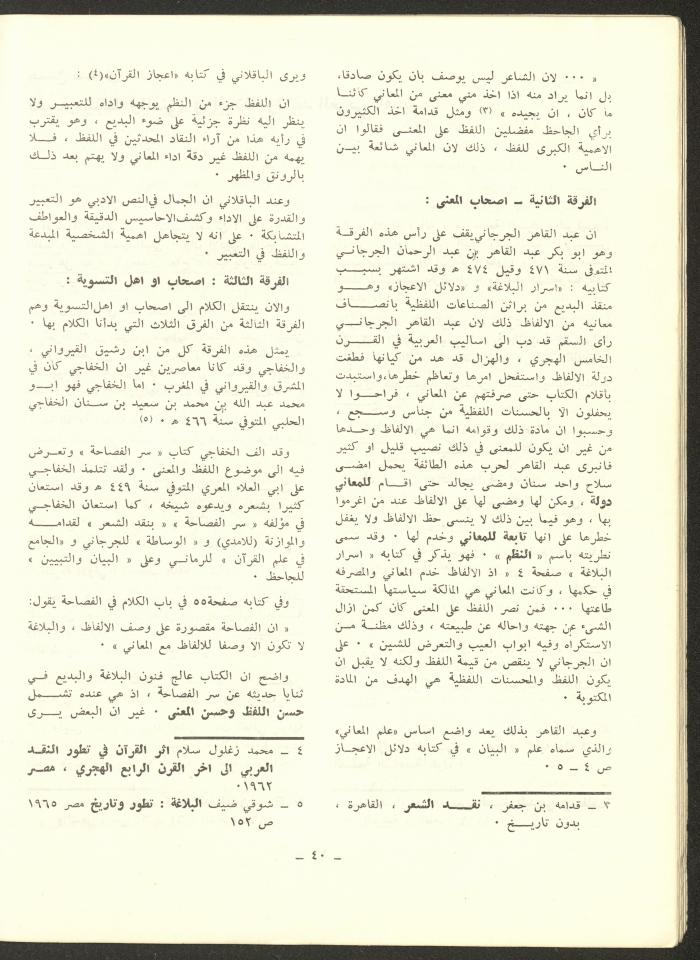 « ٠٠٠ لان الشاعر ليس يوصف بان يكون صادقا،
بل انما يراد منه اذا اخذ مني معنى من المعاني كائنا
ما كان ، ان يجيده » (٣) ومثل قدامة اخذ الكثيرون
برأي الجاحظ مفضلين اللفظ على المعنـى فقالوا ان
الاهمية الكبرى للفظ ، ذلك لان المعاني شائعة بيـن
النـاس ٠
الفرقة الثانية ــ اصحاب المعنى :
ان عبد القاهر الجرجاني يقف على رأس هذه الفرقـة
وهو ابو بكر عبد القاهر بن عبد الرحمان الجرجانـي
المتوفى سنة ٤٧١ وقيل ٤٧٤ هـ وقد اشتهر بسبـب
كتابيه : «اسرار البلاغة» و «دلائل الاعجاز» وهـو
منقذ البديع من براثن الصناعات اللفظية بانصـاف
معانيه من الالفاظ ذلك لان عبد القاهر الجرجانـي
رأى السقم قد دب الى اساليب العربية في القـرن
الخامس الهجري ، والهزال قد هد من كيانها فطغت
دولة الالفاظ واستفحل امرها وتعاظم خطرها،واستبدت
بأقلام الكتاب حتى صرفتهم عن المعاني ، فراحـوا لا
يحفلون الا بالحسنات اللفظية من جناس وسجـع ،
وحسبوا ان مادة ذلك وقوامه انما هي الالفاظ وحدها
من غير ان يكون للمعنى في ذلك نصيب قليل او كثير
فانبرى عبد القاهر لحرب هذه الطائفة يحمل امضـى
سلاح واحد سنان ومضى يجالد حتى اقـام للمعاني
دولة ، ومكن لها ومضى لها على الالفاظ عند من اغرموا
بها ، وهو فيما بين ذلك لا ينسى حظ الالفاظ ولا يغفل
خطرها على انها تابعة للمعاني وخدم لها ٠ وقد سمى
نظريته باسم « النظم » ٠ فهو يذكر في كتابه « اسرار
البلاغة » صفحة ٤ « اذ الالفاظ خدم المعاني والمصرفه
في حكمها ، وكانت المعاني هي المالكة سياستها المستحقة
طاعتها ٠٠٠ فمن نصر اللفظ على المعنى كان كمن ازال
الشىء عن جهته واحاله عن طبيعته ، وذلك مظنـة مـن
الاستكراه وفيه ابواب العيب والتعرض للشين » ٠ على
ان الجرجاني لا ينقص من قيمة اللفظ ولكنه لا يقبل ان
يكون اللفظ والمحسنات اللفظية هي الهدف من المادة
المكتوبة ٠
وعبد القاهر بذلك يعد واضع اساس «علم المعاني»
والذي سماه علم « البيان » في كتابه دلائل الاعجـاز
ص ٤ ــ ٥ ٠
٣ ــ قدامه بن جعفر ، نقـد الشعر ، القاهرة ،
بدون تاريـخ ٠
ويرى الباقلاني في كتابه «اعجاز القرآن»(٤) :
ان اللفظ جزء من النظم يوجهه واداه للتعبيـر ولا
ينظر اليه نظرة جزئية على ضوء البديع ، وهو يقترب
في رأيه هذا من آراء النقاد المحدثين في اللفظ ، فـلا
يهمه من اللفظ غير دقة اداء المعاني ولا يهتم بعد ذلـك
بالرونق والمظهر ٠
وعند الباقلاني ان الجمال في النص الادبي هو التعبير
والقدرة على الاداء وكشف الاحاسيس الدقيقة والعواطف
المتشابكة ٠ على انه لا يتجاهل اهمية الشخصية المبدعة
واللفظ في التعبير ٠
الفرقة الثالثة : اصحاب او اهل التسوية :
والان ينتقل الكلام الى اصحاب او اهل التسوية وهم
الفرقة الثالثة من الفرق الثلاث التي بدأنا الكلام بها ٠
يمثل هذه الفرقة كل من ابن رشيق القيرواني ،
والخفاجي وقد كانا معاصرين غير ان الخفاجي كان في
المشرق والقيرواني في المغرب ٠ اما الخفاجي فهو ابـو
محمد عبد الله بن محمد بن سعيد بن سنـان الخفاجي
الحلبي المتوفي سنة ٤٦٦ هـ ٠ (٥)
وقد الف الخفاجي كتاب « سر الفصاحة » وتعـرض
فيه الى موضوع اللفظ والمعنى ٠ ولقد تتلمذ الخفاجـي
على ابي العلاء المعري المتوفي سنة ٤٤٩ هـ وقد استعان
كثيرا بشعره ويدعوه شيخه ، كما استعان الخفاجـي
في مؤلفه « سر الفصاحة » « بنقد الشعر » لقدامـه
والموازنة (للامدي) و « الوساطة » للجرجاني و «الجامع
في علم القرآن » للرمانـي وعلى « البيان والتبيين »
للجاحظ ٠
وفي كتابه صفحة٥٥ في باب الكلام في الفصاحة يقول:
« ان الفصاحة مقصورة على وصف الالفاظ ، والبلاغة
لا تكون الا وصفا للالفاظ مع المعاني » ٠
واضح ان الكتاب عالج فنون البلاغة والبديع فـي
ثنايا حديثه عن سر الفصاحة ، اذ هي عنده تشمـل
حسن اللفظ وحسن المعنى ٠ غير ان البعض يـرى
٤ ــ محمد زغلول سلام اثر القرآن في تطور النقـد
العربي الى اخر القرن الرابع الهجري ، مصـر
١٩٦٢٠
٥ ــ شوقي ضيف البلاغة : تطور وتاريخ مصر ١٩٦٥
ص ١٥٢
ــ ٤٠ ــ